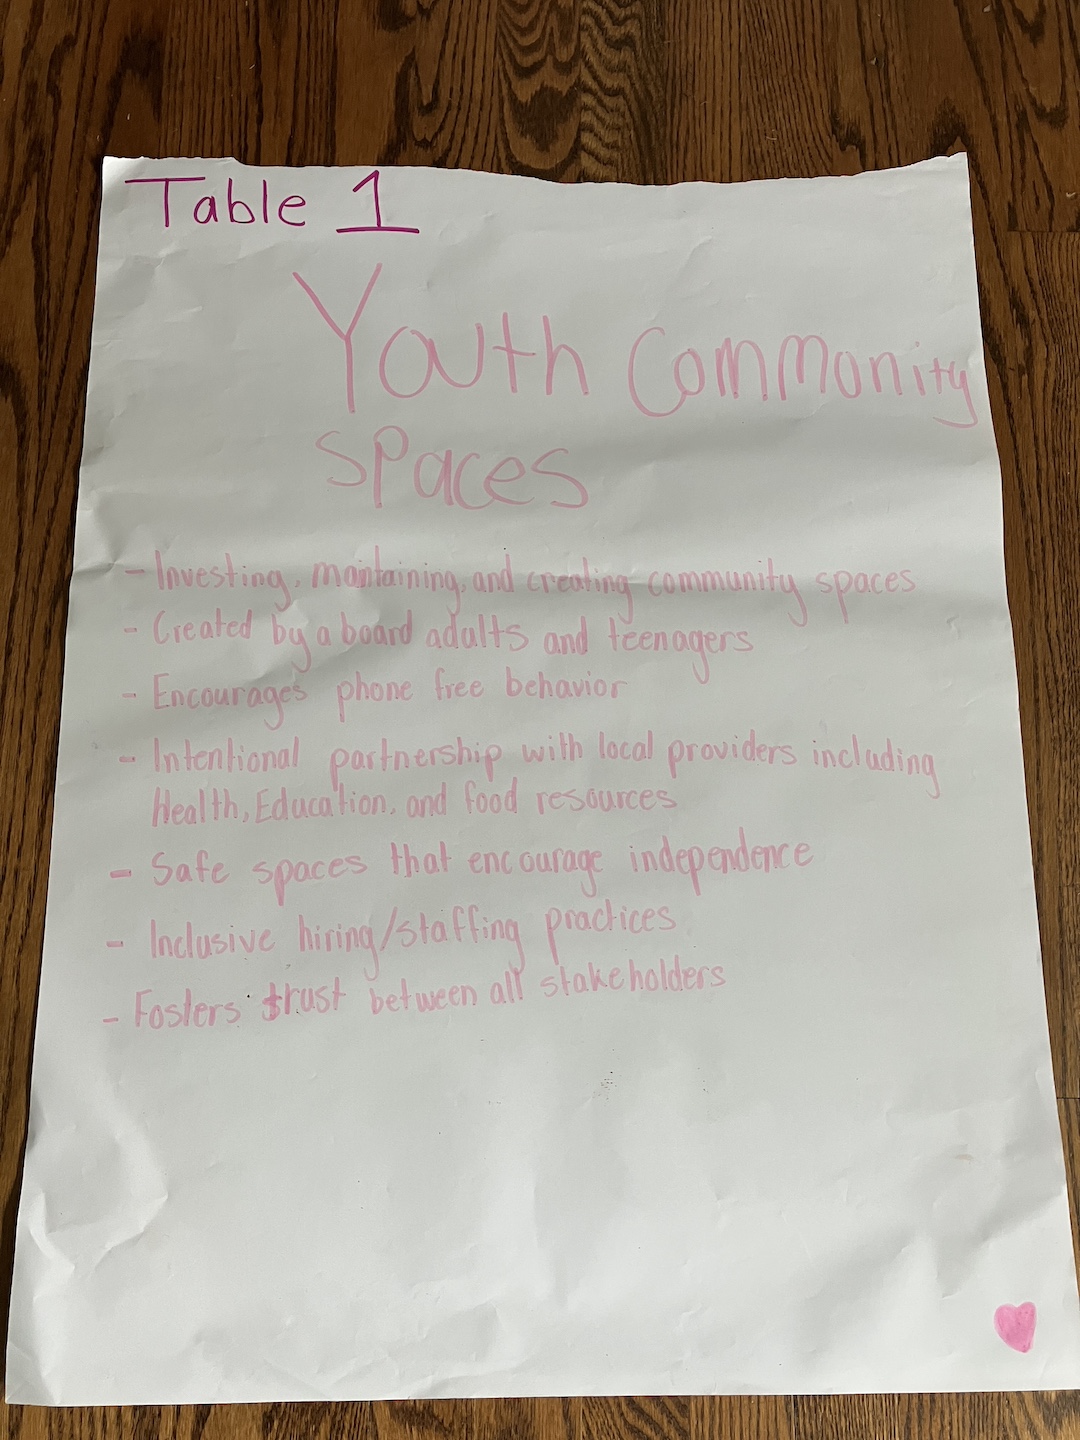 Table 1
Youth Commonity
spaces
- Investing, maintaining, and creating community spaces
- Created by a board adults and teenagers
- Encourages phone free behavior
- Intentional partnership with local providers including
Health, Education, and food resources
- Safe spaces that encourage independence
- Inclusive hiring/staffing practices
- Fosters trust between all stakeholders